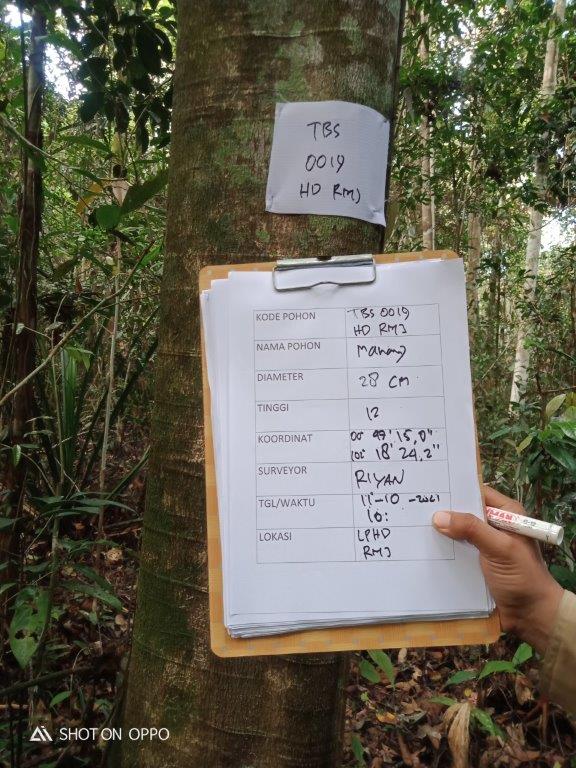 TBS
0019
HD RMJ
KODE POHON TBS 0019
HD RMJ
NAMA POHON
DIAMETER 28 CM
TINGGI 12
KOORDINAT 15,0"
18' 24,2"
SURVEYOR RIYAN
TGL/WAKTU 11-10 -2021
10:
LOKASI LPHD
RMJ
SHOT ON OPPO